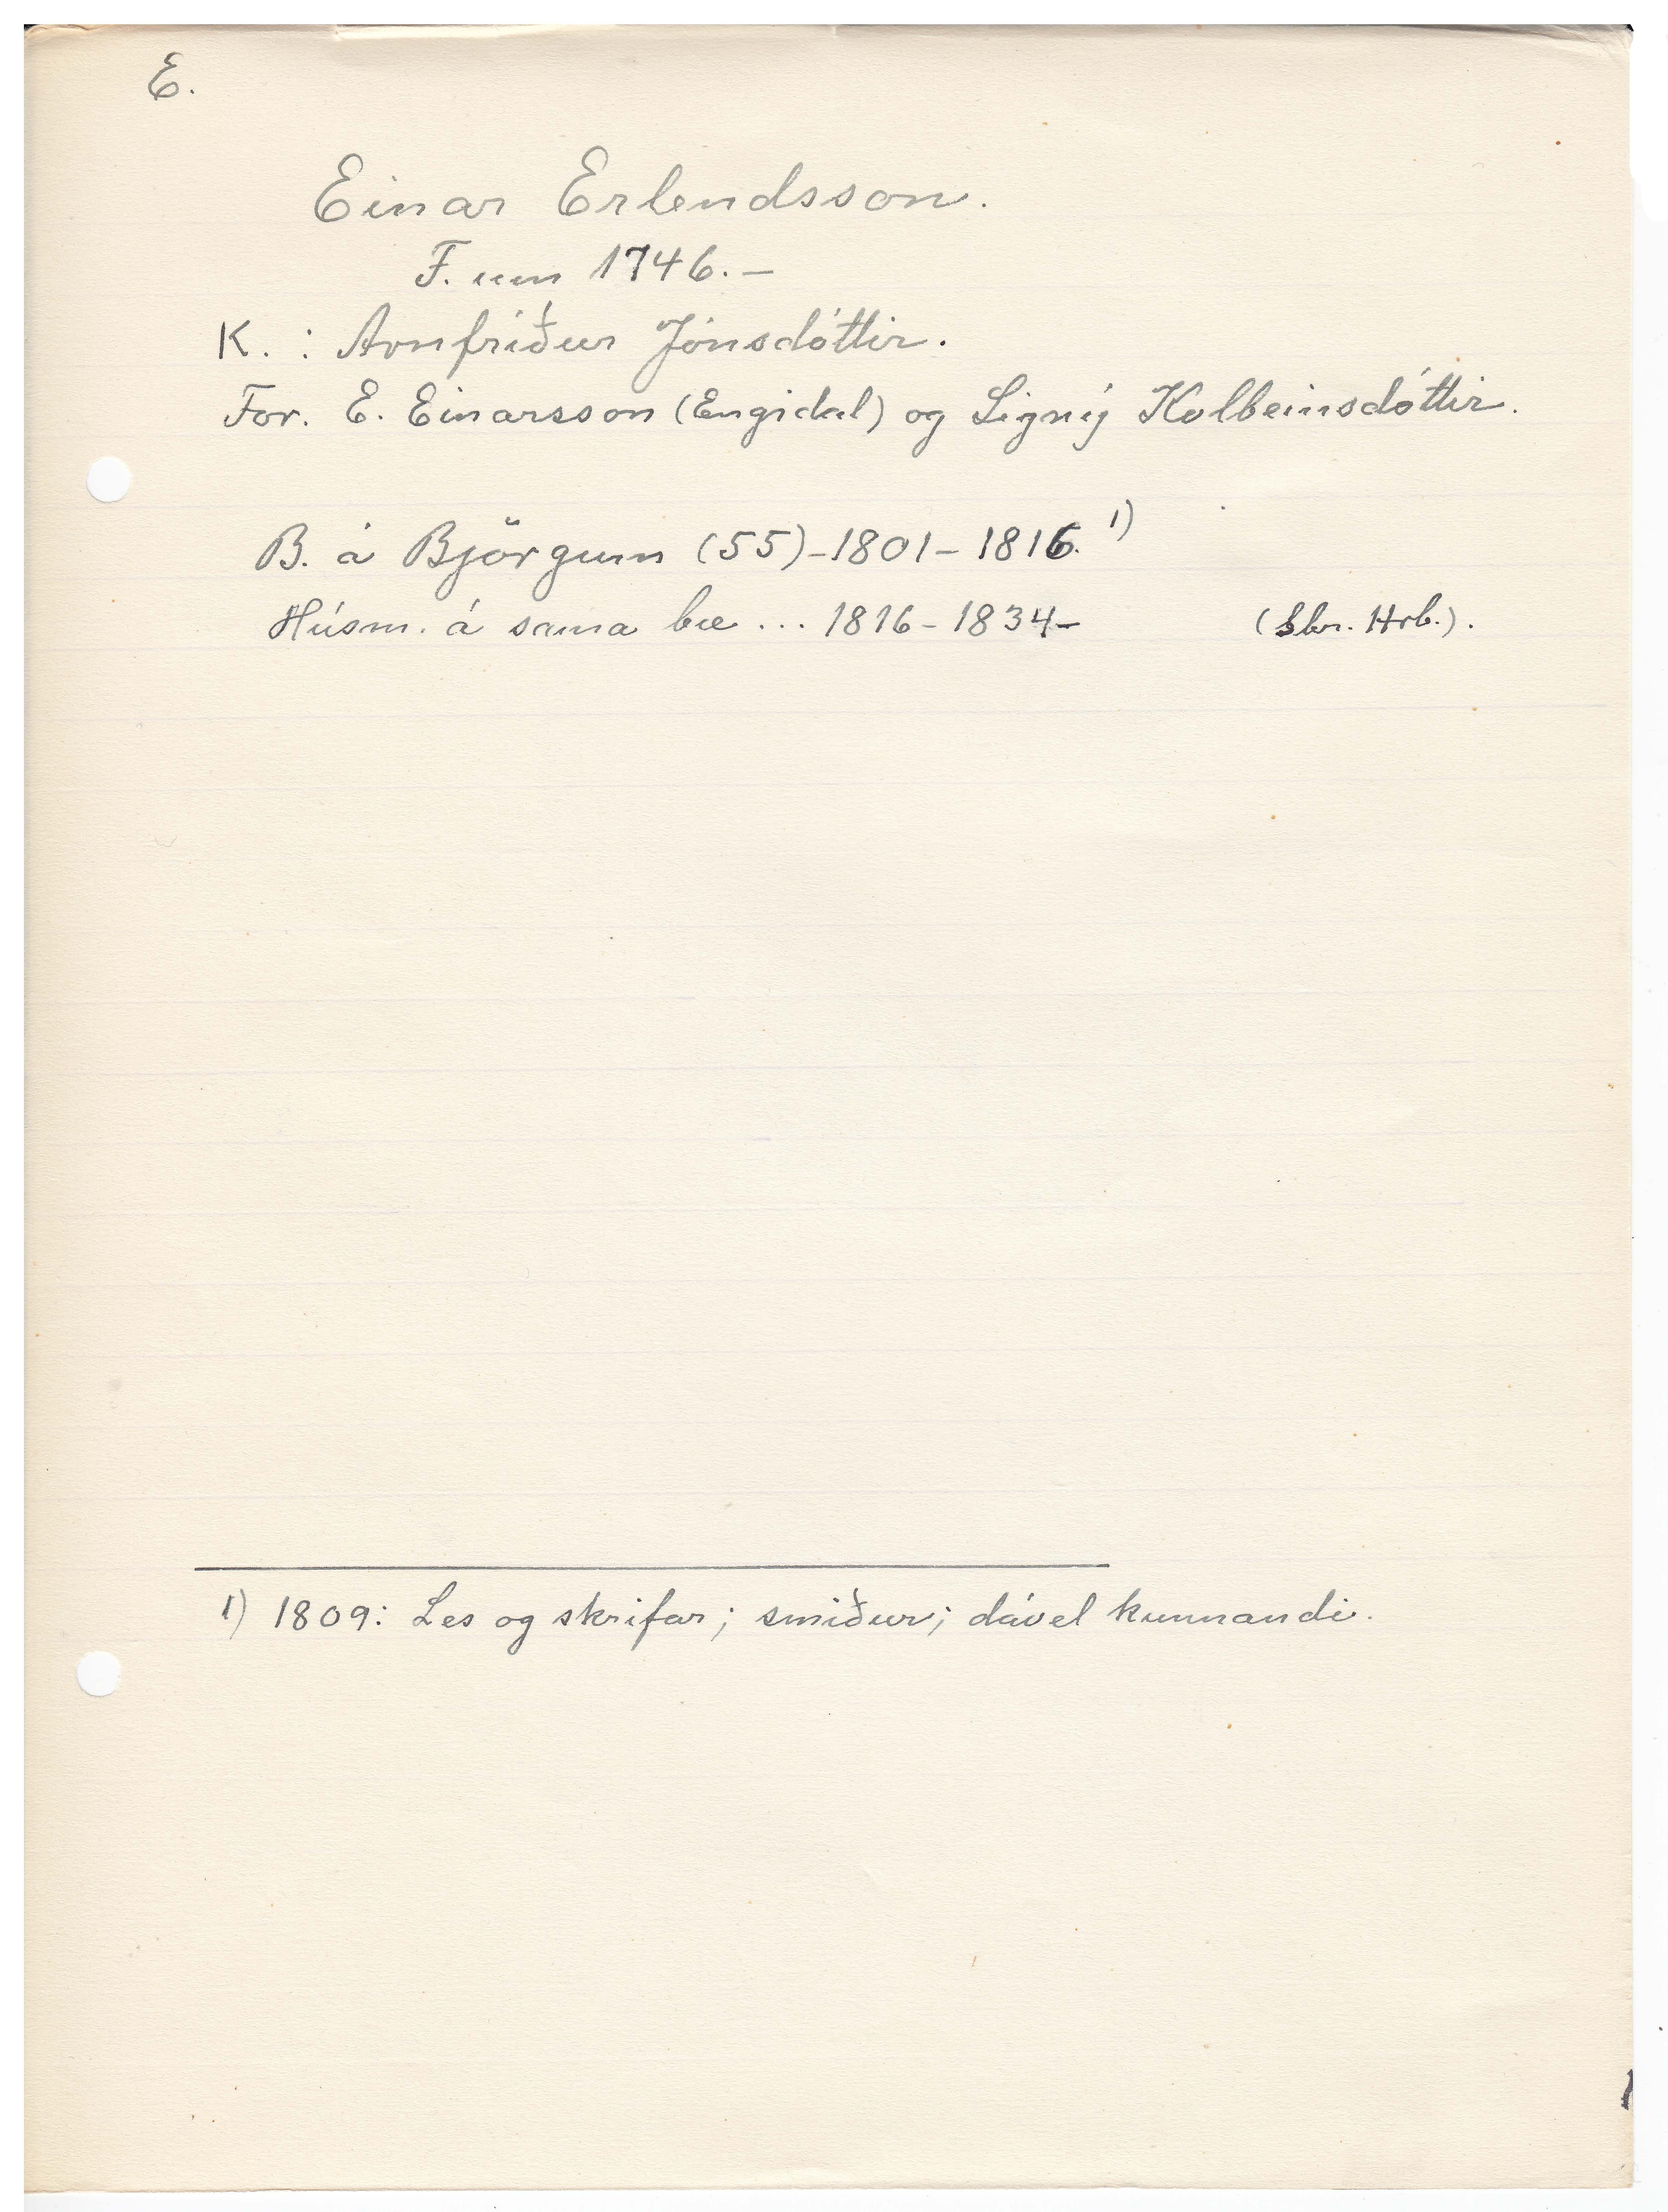 E.
Einar Erlendsson.
F. um 1746. –
K. : Arnfríður Jónsdóttir.
For. E. Einarsson (Engidal) og Signý Kolbeinsdóttir.
B. á Björgum (55) – 1801 – 1816. 1)
Húsm. á sama bæ ... 1816 – 1834 – (Skr. Hrb.).
1) 1809: Les og skrifar; smiður; dável kunnandi.